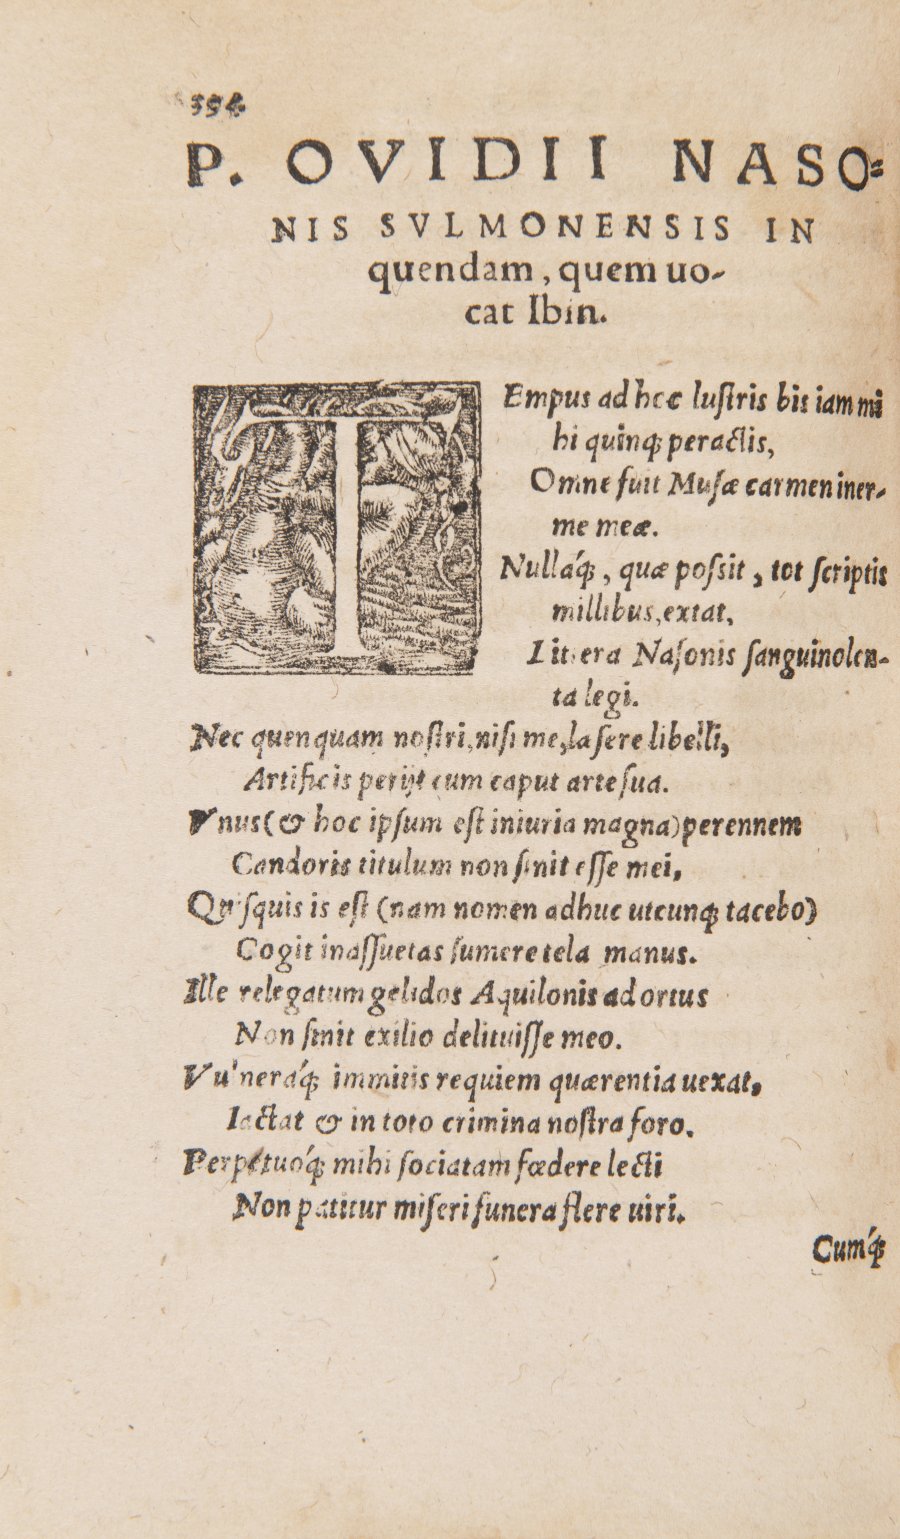 394
P. OVIDII NASO-
NIS SVLMONENSIS IN
quendam, quem uo-
cat Ibin.
TEmpus ad hoc luſtris bis iam mi
hi quinq; peractis,
Omne fuit Muſæ carmen iner-
me meæ.
Nullaq́;, quæ poſsit, tot ſcriptis
millibus, extat,
Litera Naſonis ſanguinolen-
ta legi.
Nec quenquam noſtri, niſi me, læſere libelli,
Artificis perijt cum caput arte ſua.
Vnus (& hoc ipſum eſt iniuria magna) perennem
Candoris titulum non ſinit eſſe mei,
Quiſquis is eſt (nam nomen adhuc utcunq; tacebo)
Cogit inaſſuetas ſumere tela manus.
Ille relegatum gelidos Aquilonis ad ortus
Non ſinit exilio delituiſſe meo.
Vulneraq́; immitis requiem quærentia uexat,
Iactat & in toto crimina noſtra foro.
Perpetuoq́; mihi ſociatam fœdere lecti
Non patitur miſeri funera flere uiri.
Cumq́;